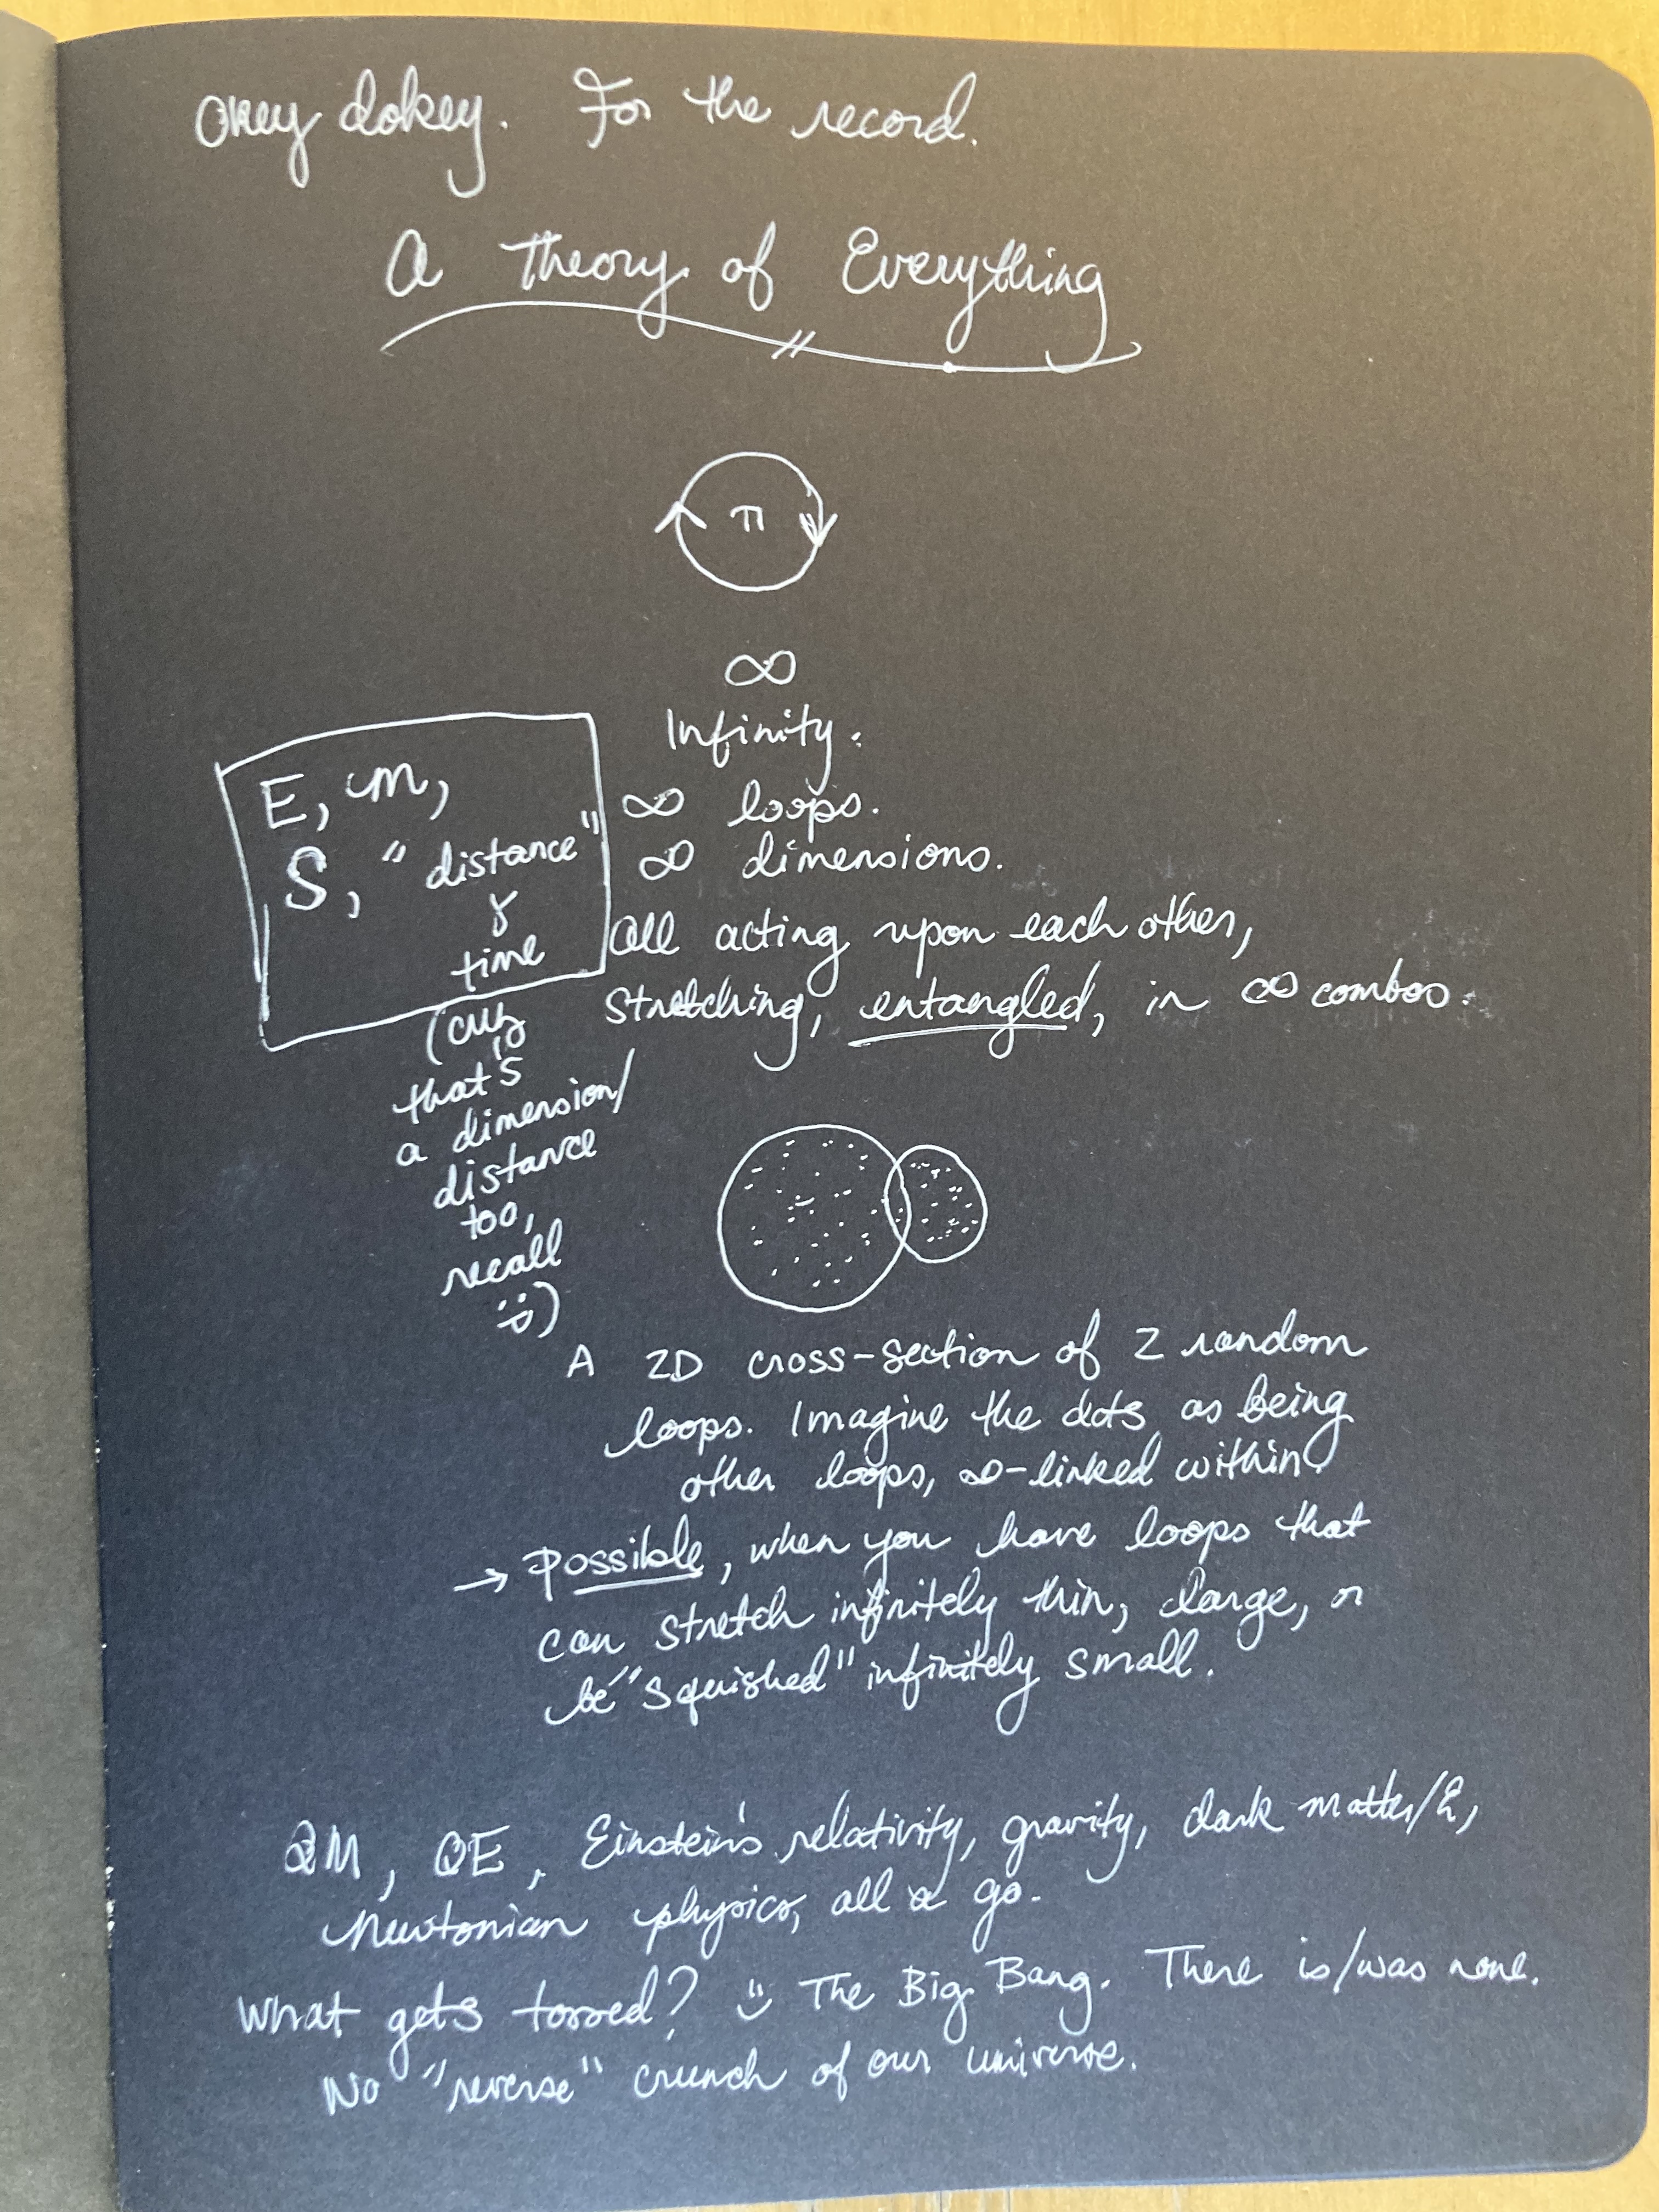 Okey dokey. For the record.
A Theory of Everything
π
∞
Infinity.
∞ loops.
∞ dimensions.
All acting upon each other,
stretching, entangled, in ∞ combos.
E, m,
S, "distance"
&
time
(cuz
that's
a dimension/
distance
too,
recall
:))
A 2D cross-section of 2 random
loops. Imagine the dots as being
other loops, ∞-linked within.
→ Possible, when you have loops that
can stretch infinitely thin, large, or
be "squished" infinitely small.
QM, QE, Einstein's relativity, gravity, dark matter/E,
Newtonian physics, all a go.
What gets tossed? :) The Big Bang. There is/was none.
No "reverse" crunch of our universe.